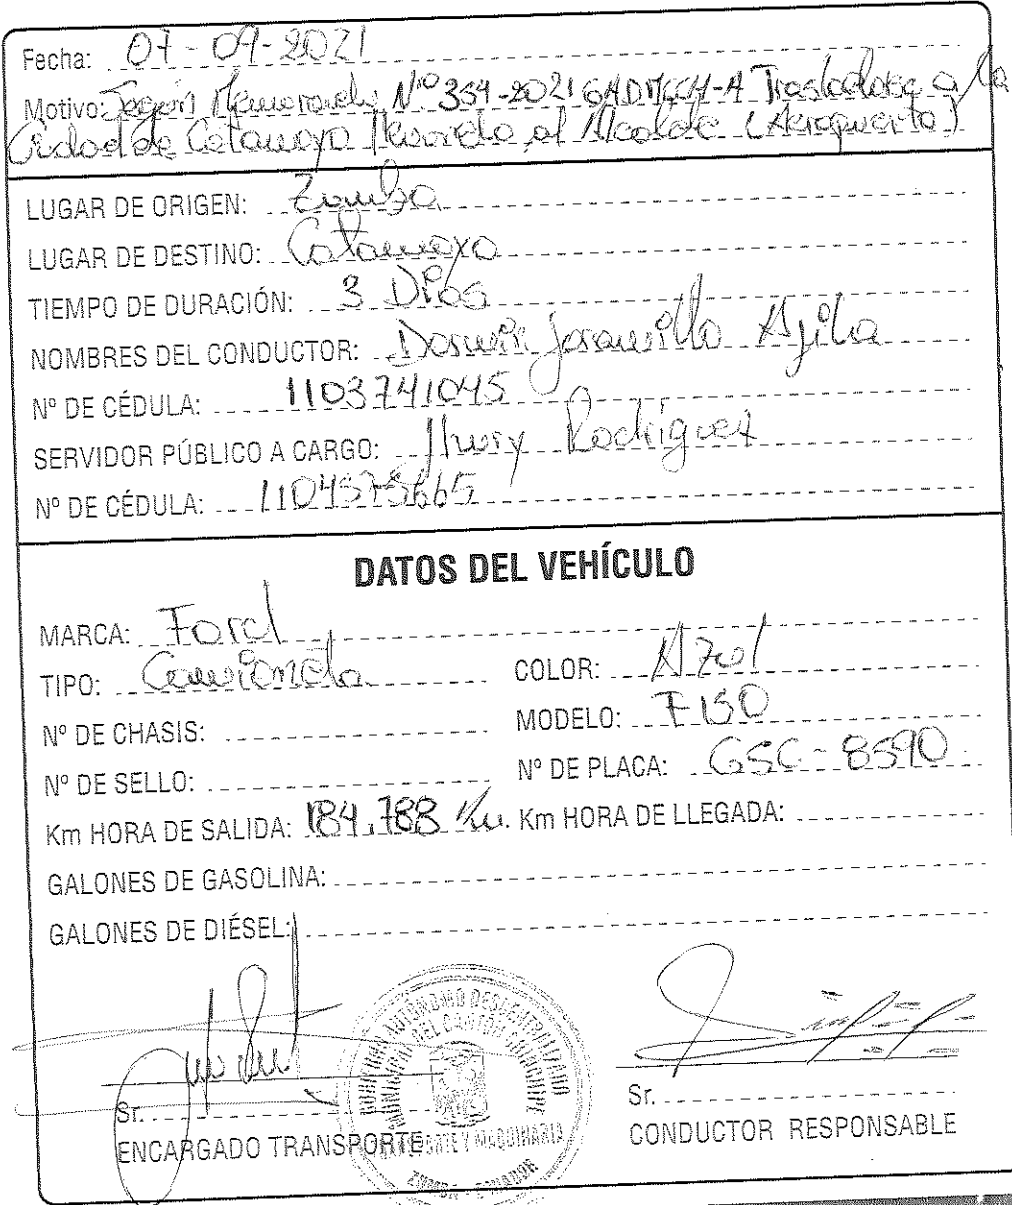 Fecha: 07-09-2021
Motivo: Según Memorando Nº 354-2021 GADMCCH-A Trasladarse a la
Ciudad de Catamayo llevando al Alcalde (Aeropuerto)
LUGAR DE ORIGEN: Zumba
LUGAR DE DESTINO: Catamayo
TIEMPO DE DURACIÓN: 3 Días
NOMBRES DEL CONDUCTOR: Darwin Jaramillo Ajila
Nº DE CÉDULA: 1103741045
SERVIDOR PÚBLICO A CARGO: Jhury Rodriguez
Nº DE CÉDULA: 1104575665
DATOS DEL VEHÍCULO
MARCA: Ford
TIPO: Camioneta COLOR: Azul
Nº DE CHASIS: MODELO: F150
Nº DE SELLO: Nº DE PLACA: GSC-8590
Km HORA DE SALIDA: 184.788 Km. Km HORA DE LLEGADA:
GALONES DE GASOLINA:
GALONES DE DIÉSEL:
GOBIERNO AUTÓNOMO DESCENTRALIZADO
MUNICIPAL DEL CANTÓN CHINCHIPE
TRANSPORTE Y MAQUINARIA
ZUMBA - ECUADOR
Sr. Sr.
ENCARGADO TRANSPORTE CONDUCTOR RESPONSABLE